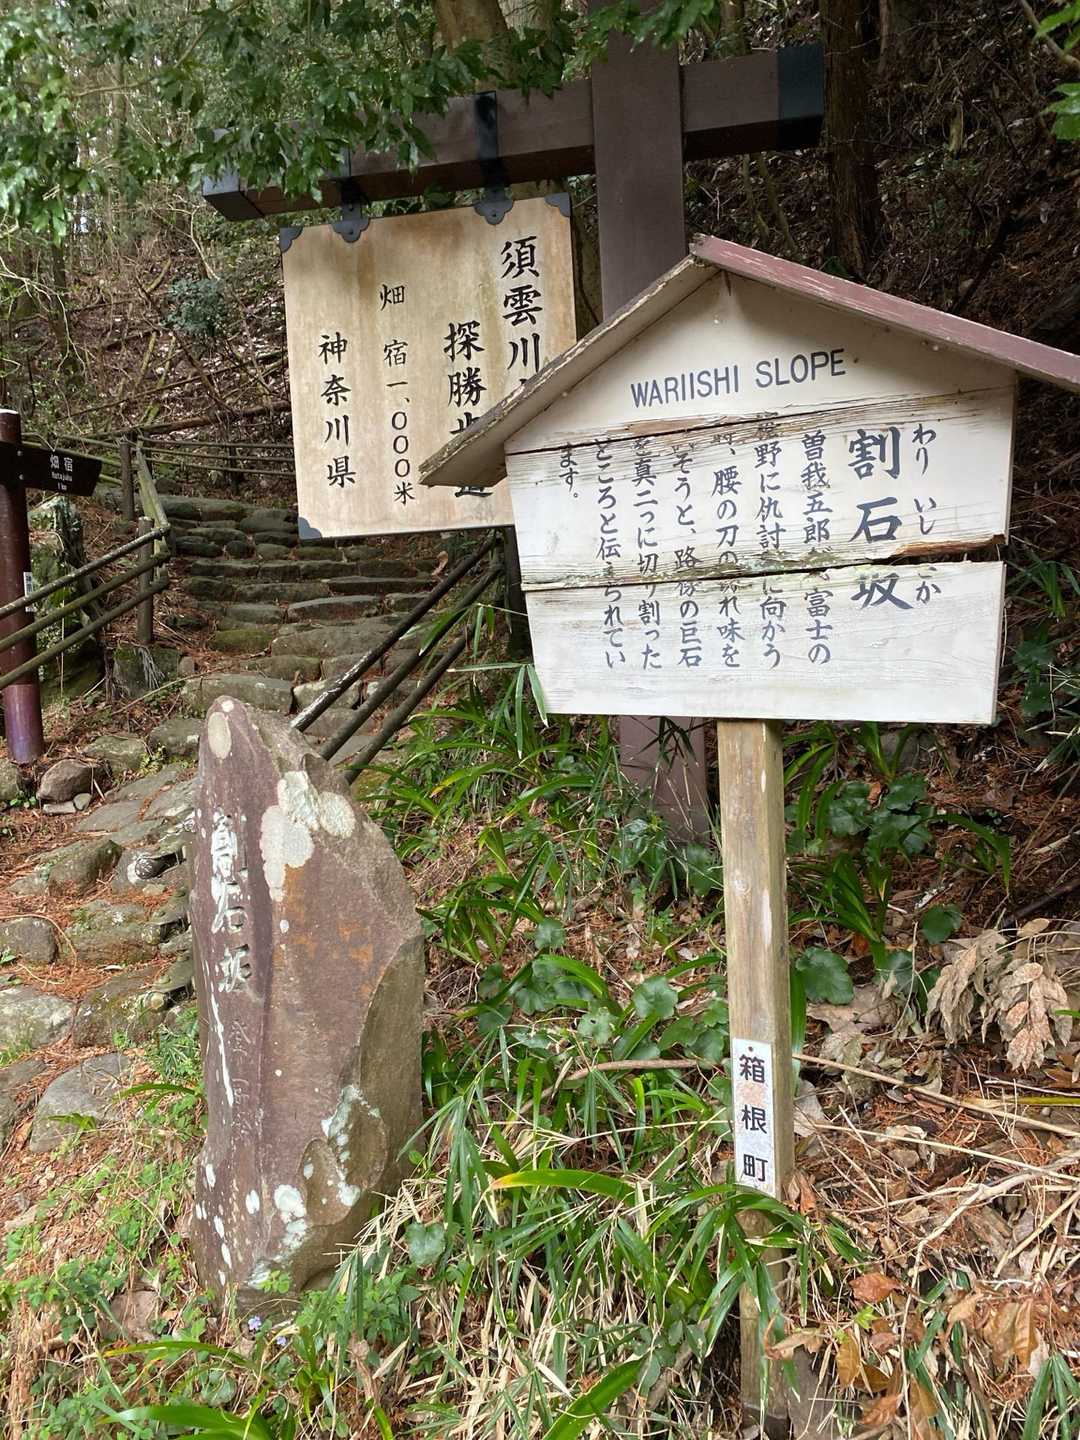 須雲川
探勝歩道
畑宿一、〇〇〇米
神奈川県
畑宿
Hatajuku
1km
WARIISHI SLOPE
わりいしざか
割石坂
曽我五郎が、富士の
裾野に仇討ちに向かう
時、腰の刀の切れ味を
試そうと、路傍の巨石
を真二つに切り割った
ところと伝えられてい
ます。
割石坂
箱根町